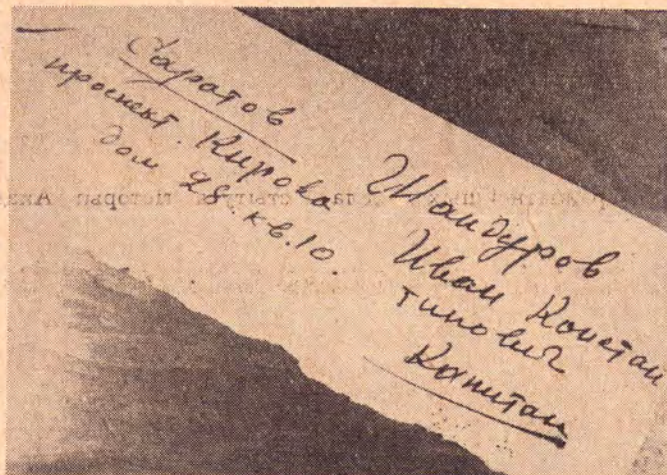 Саратов
проспект Кирова
дом 28. кв. 10.
Шандуров
Иван Констан
тинович
Капитан